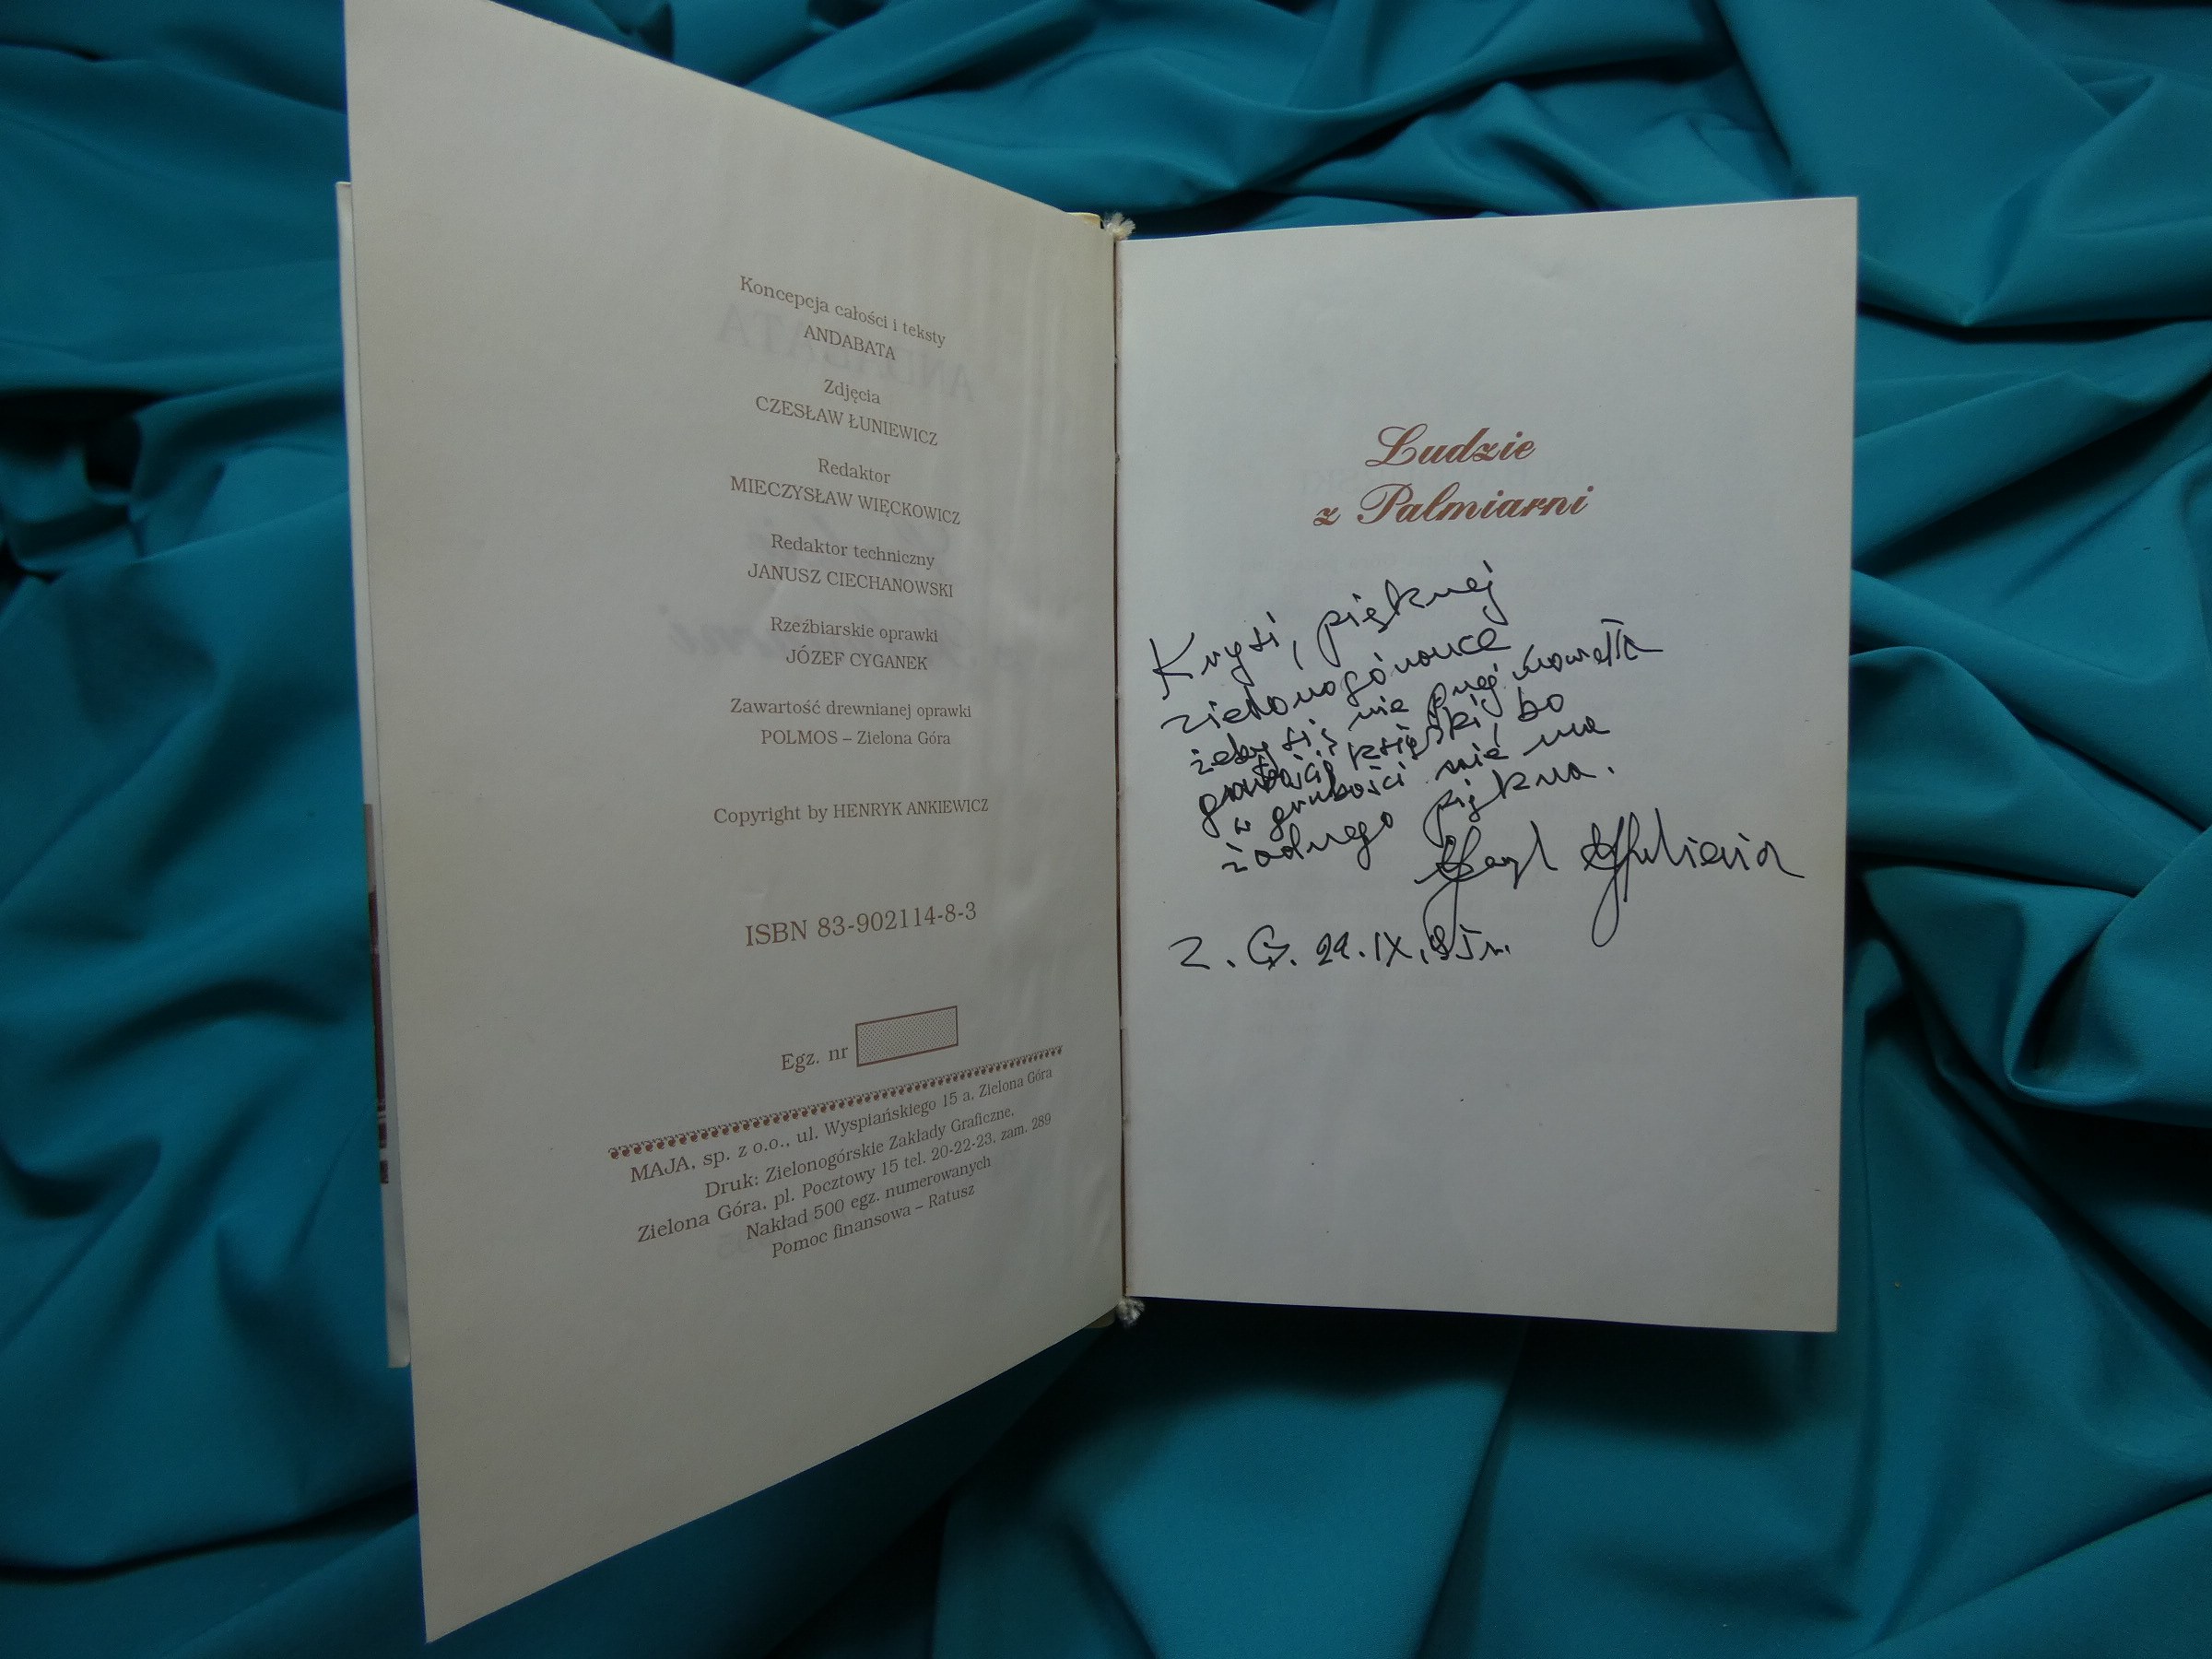 Koncepcja całości i teksty
ANDABATA
Zdjęcia
CZESŁAW ŁUNIEWICZ
Redaktor
MIECZYSŁAW WIĘCKOWICZ
Redaktor techniczny
JANUSZ CIECHANOWSKI
Rzeźbiarskie oprawki
JÓZEF CYGANEK
Zawartość drewnianej oprawki
POLMOS – Zielona Góra
Copyright by HENRYK ANKIEWICZ
ISBN 83-902114-8-3
Egz. nr
MAJA, sp. z o.o., ul. Wyspiańskiego 15 a, Zielona Góra
Druk: Zielonogórskie Zakłady Graficzne,
Zielona Góra, pl. Pocztowy 15 tel. 20-22-23, zam. 289
Nakład 500 egz. numerowanych
Pomoc finansowa – Ratusz
Ludzie
z Palmiarni
Krysi, pięknej
zielonogórance
żeby się nie przejmowała
grubością książki, bo
w grubości nie ma
żadnego piękna.
Z. G. IX.95 r.